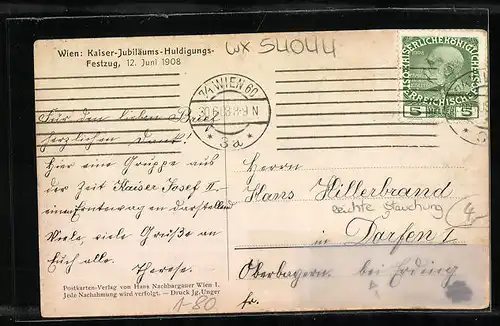 Wien: Kaiser-Jubiläums-Huldigungs-
Festzug, 12. Juni 1908
wx 54044
7/4 WIEN 60
8-9 N
* 3a *
KAISERLICHE KÖNIGLICHE
ÖSTERREICHISCHE
5 5
Für den lieben Brief
herzlichen Dank!
Hier eine Gruppe aus
der Zeit Kaiser Josef II.
einen Erntewagen darstellend
Viele, viele Grüße an
Euch alle.
Therese.
Herrn
Hans Hillerbrand
leichte Stauchung
4,-
in Dorfen I
Oberbayern. bei Erding
Postkarten-Verlag von Hans Nachbargauer Wien I.
Jede Nachahmung wird verfolgt. – Druck Jg. Unger
1-80